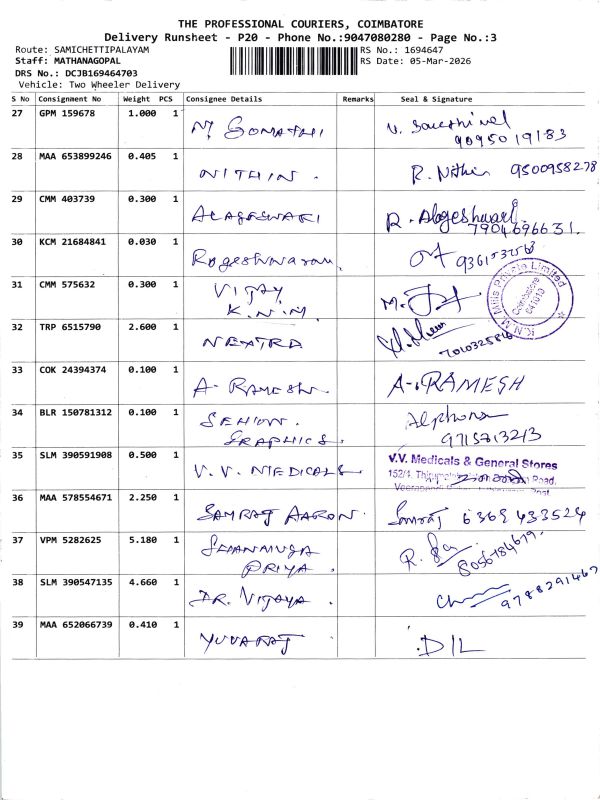 THE PROFESSIONAL COURIERS, COIMBATORE
Delivery Runsheet - P20 - Phone No.:9047080280 - Page No.:3
Route: SAMICHETTIPALAYAM
RS No.: 1694647
Staff: MATHANAGOPAL
RS Date: 05-Mar-2026
DRS No.: DCJB169464703
Vehicle: Two Wheeler Delivery
S No Consignment No Weight PCS Consignee Details Remarks Seal & Signature
27 GPM 159678 1.000 1 M. GOMATHI
9095019183
28 MAA 653899246 0.405 1 NITHIN. R. Nithin 9500958278
29 CMM 403739 0.300 1 ALAGESWARI R. Alageshwari
7904696631.
30 KCM 21684841 0.030 1 Rogeshwaran.
31 CMM 575632 0.300 1 VIJAY
K.N.M.
K.N.M Mills Private Limited
Coimbatore
641019
32 TRP 6515790 2.600 1 NEXTRA
33 COK 24394374 0.100 1 A. RAMESH. A. RAMESH
34 BLR 150781312 0.100 1 SEHION.
GRAPHICS.
Alphonsa
9715713213
35 SLM 390591908 0.500 1 V.V. MEDICALS
V.V. Medicals & General Stores
152/4, Road,
36 MAA 578554671 2.250 1 SAMRAJ AARON. Samraj 6369433524
37 VPM 5282625 5.180 1 SHANMUGA
PRIYA.
8056784679.
38 SLM 390547135 4.660 1 DR. VIJAYA.
9788291467
39 MAA 652066739 0.410 1 YUVARAJ DIL